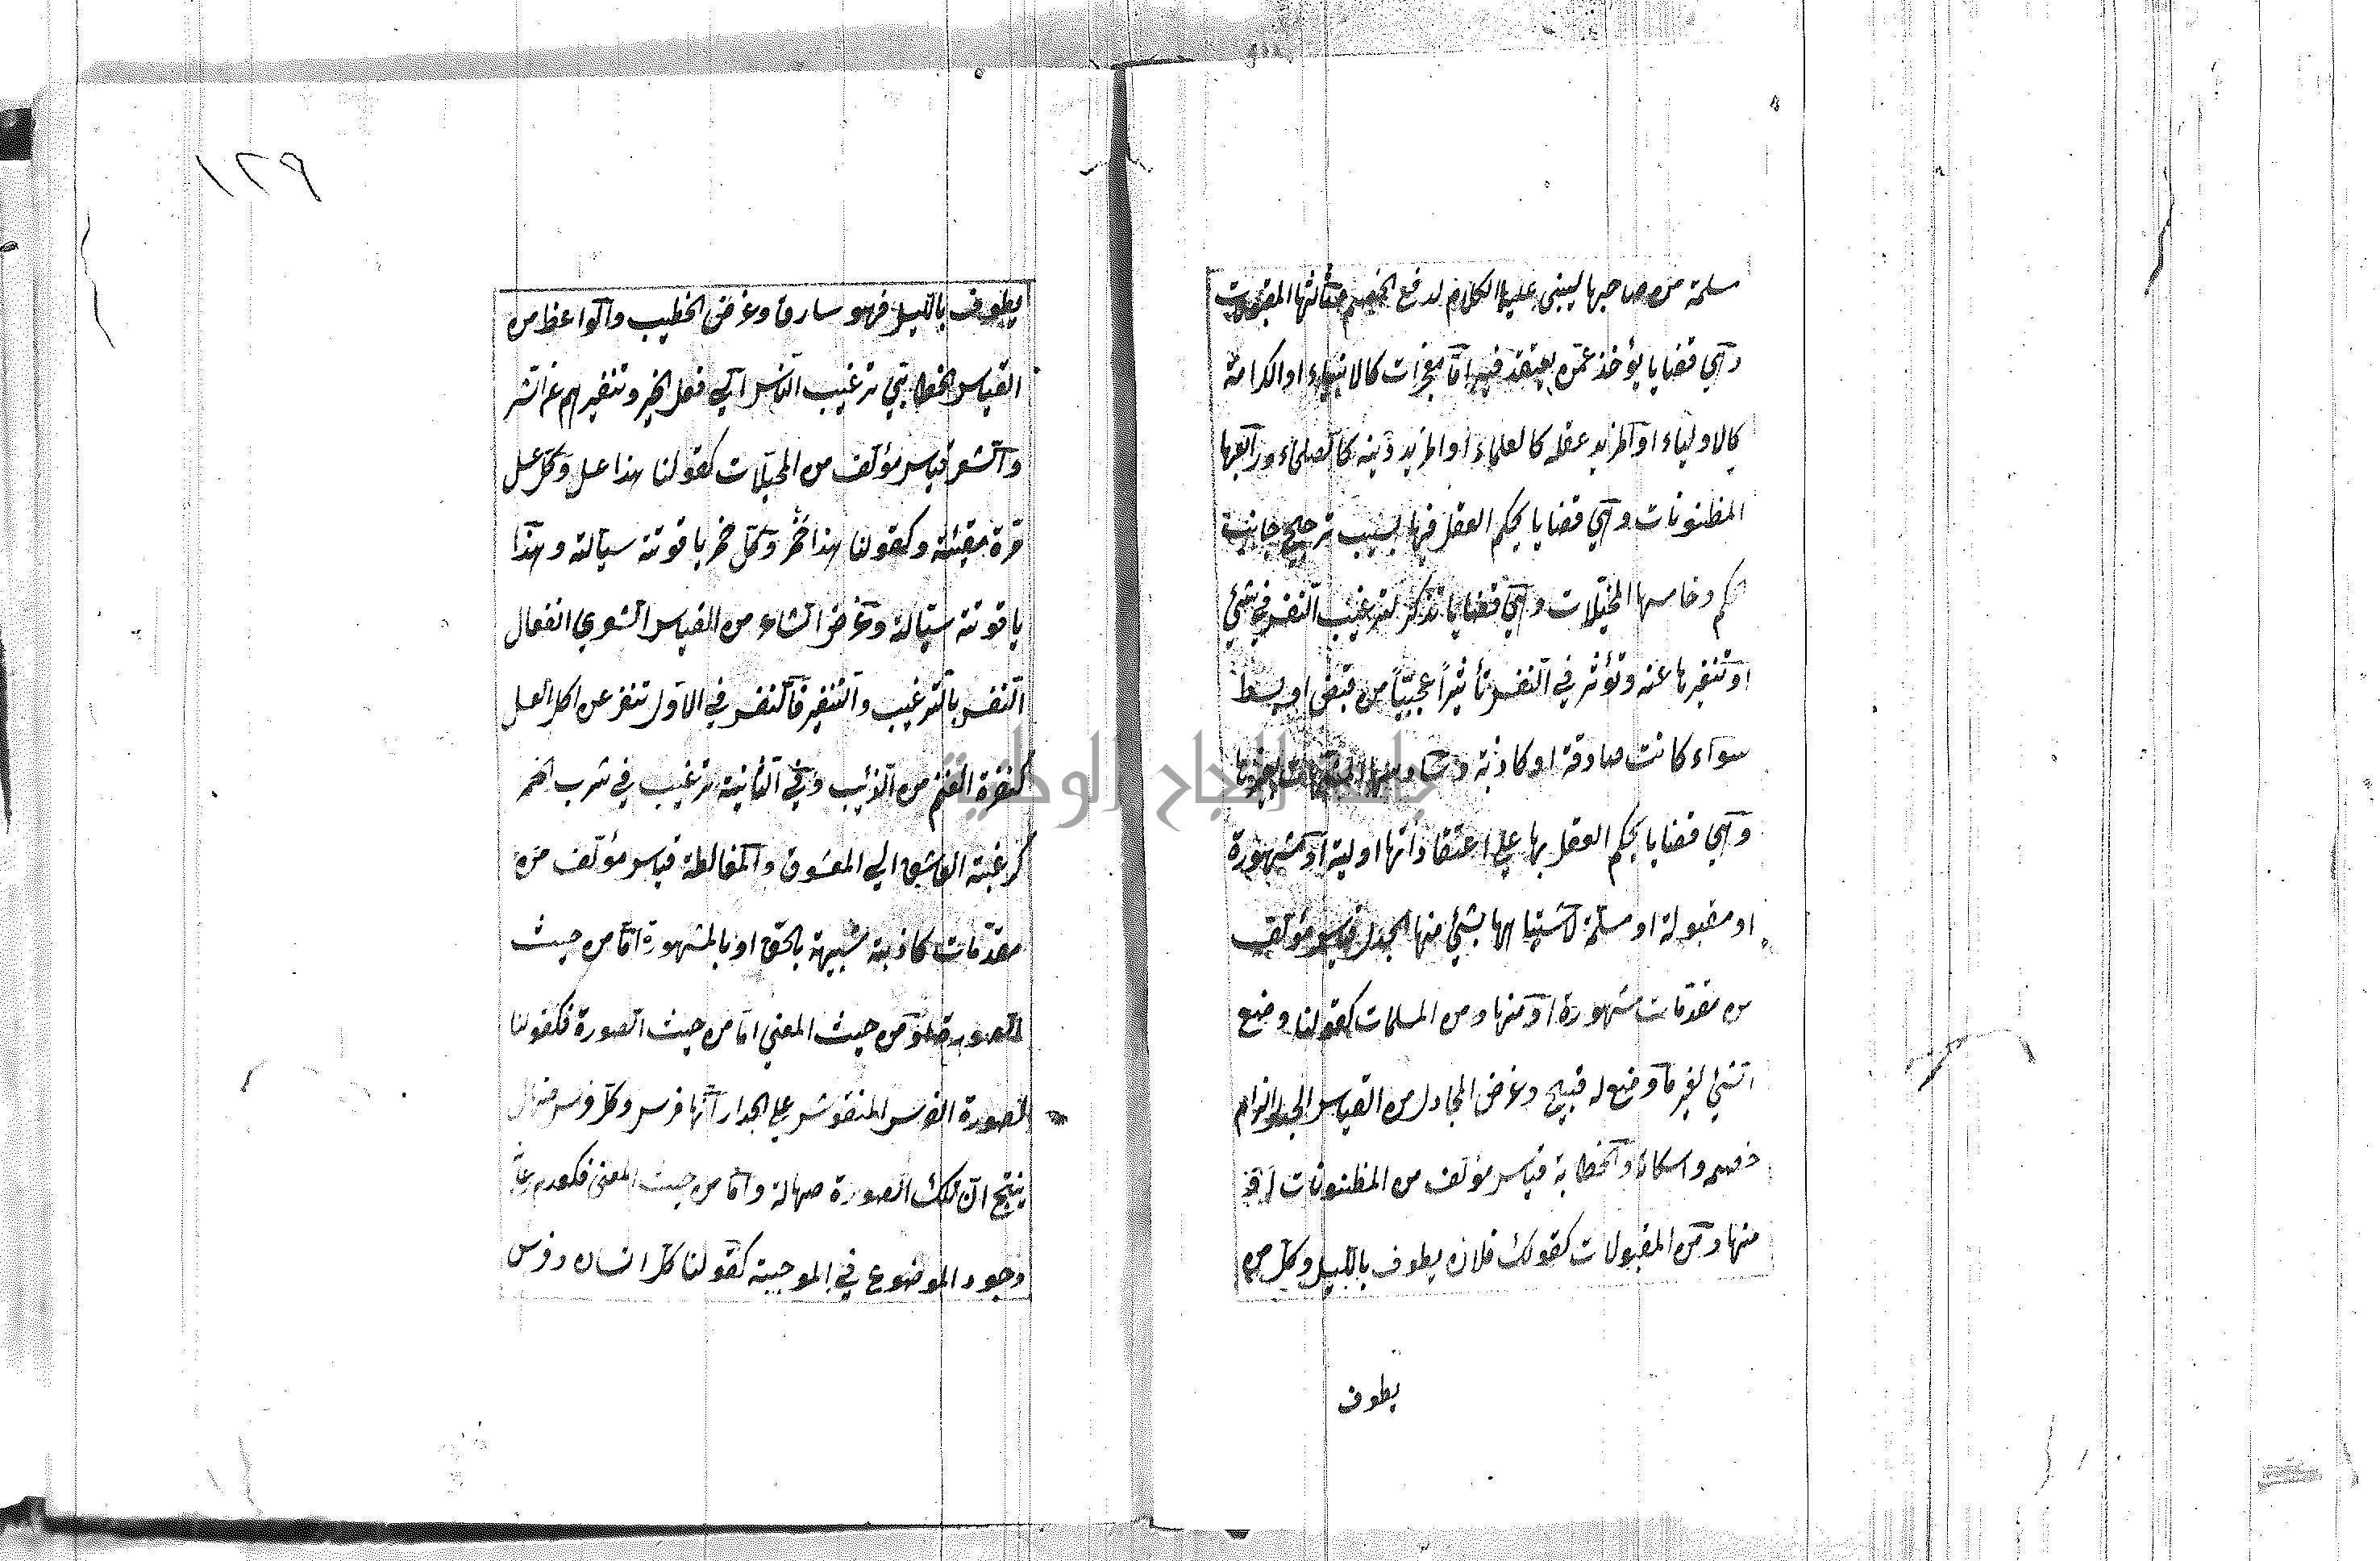 مسلمة من صاحبها ليبنى عليها الكلام لدفع الخصم وثالثها المقبولات
وهي قضايا يؤخذ عمن يعتقد فيه اما معجزات كالانبياء او الكرامة
كالاولياء او لمزيد عقله كالعلماء او لمزيد دينه كالصلحاء ورابعها
المظنونات وهي قضايا يحكم العقل فيها بسبب ترجيح جانب
حكم وخامسها المخيلات وهي قضايا تذكر لترغيب النفس في شئ
او تنفيرها عنه وتؤثر في النفس تأثيراً عجيباً من قبض او بسط
سواء كانت صادقة او كاذبة
وهي قضايا يحكم العقل بها على اعتقاد انها اولية او مشهورة
او مقبولة او مسلمة لاشتباهها بشئ منها الجدل قياس مؤلف
من مقدمات مشهورة او منها ومن المسلمات كقولنا وضع
الشئ لغير ما وضع له قبيح وغرض المجادل من القياس الجدلي الزام
خصمه واسكاته والخطابة قياس مؤلف من المظنونات او
منها ومن المقبولات كقولك فلان يطوف بالليل وكل من
يطوف
١٢٩
يطوف بالليل فهو سارق وغرض الخطيب والواعظ من
القياس الخطابي ترغيب الناس الي فعل الخير وتنفيرهم عن الشر
والشعر قياس مؤلف من المخيلات كقولنا هذا عسل وكل عسل
مرة مقيئة وكقولنا هذا خمر وكل خمر ياقوتة سيالة وهذا
ياقوتة سيالة وغرض الشاعر من القياس الشعري انفعال
النفس بالترغيب والتنفير فالنفس في الاول تنفر عن اكل العسل
كنفرة الغنم من الذئيب وفي الثانية ترغيب في شرب الخمر
كرغبة العاشق الي المعشوق والمغالطة قياس مؤلف من
مقدمات كاذبة شبيهة بالحق او بالمشهورة اما من حيث
الصورة او من حيث المعني اما من حيث الصورة فكقولنا
لصورة الفرس المنقوش على الجدار انها فرس وكل فرس صهال
ينتج ان تلك الصورة صهالة واما من حيث المعنى فكعدم رعاية
وجود الموضوع في الموجبة كقولنا كل انسان وفرس